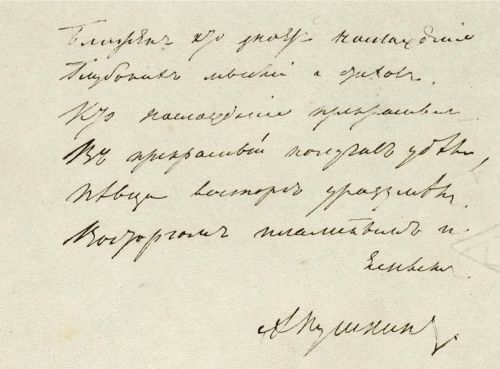 Блаженъ кто знаетъ наслажденіе
Глубокихъ мыслей и стиховъ.
Кто наслажденіе прекраснымъ
Въ прекрасный получивъ удѣлъ,
Пѣвца восторгъ уразумѣлъ
Восторгомъ пламеннымъ и
А Пушкинъ